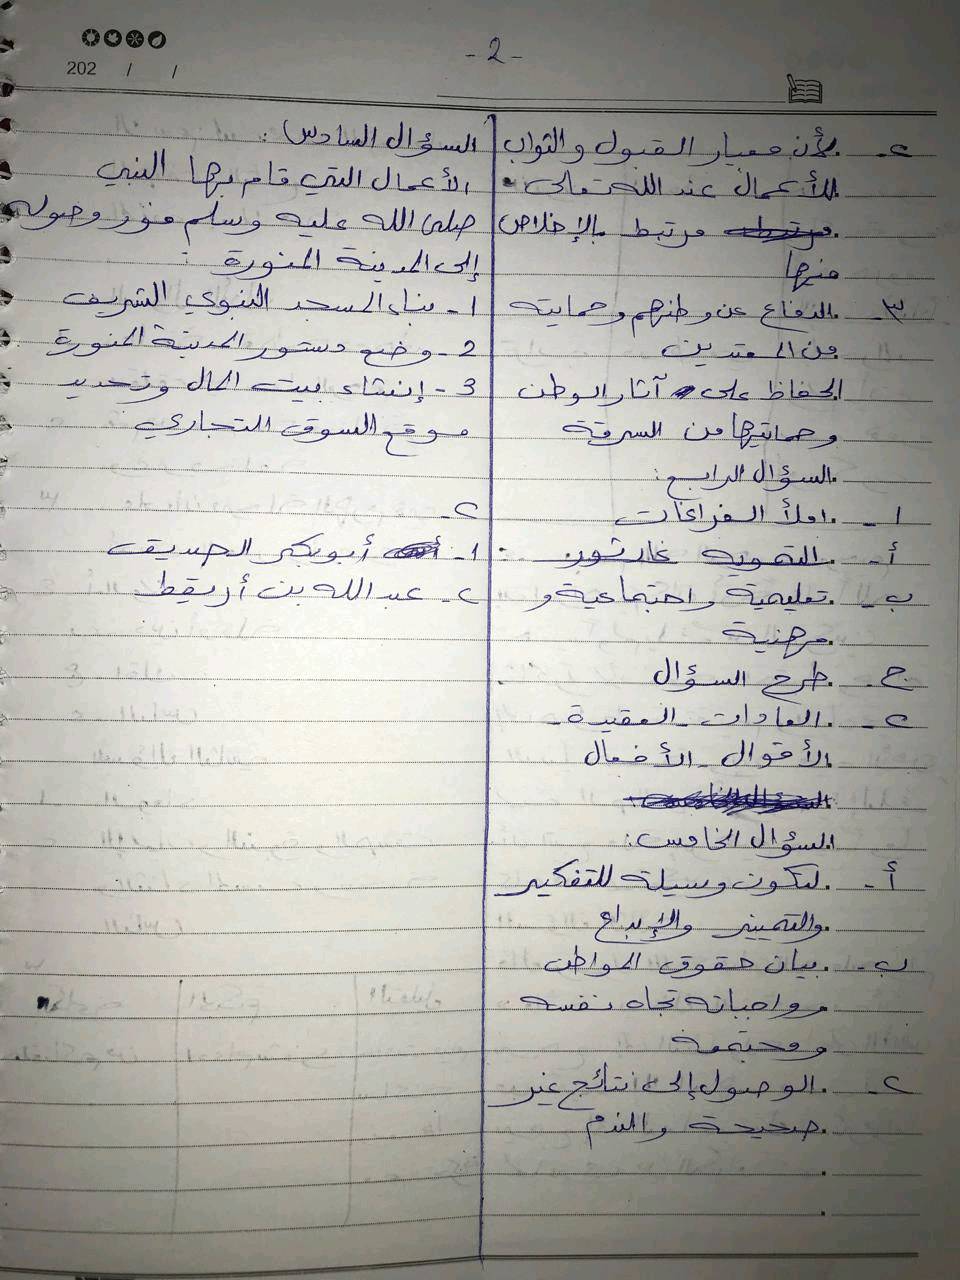 - 2 -
202 / /
٢- لأن معيار القبول والثواب
للأعمال عند الله تعالى
مرتبط بالإخلاص
منها
٣- الدفاع عن وطنهم وحمايته
من المعتدين
الحفاظ على آثار الوطن
وحمايتها من السرقة
السؤال الرابع:
١- املأ الفراغات
أ- التمويه
ب- تعليمية واجتماعية و
مهنية
ج- طرح السؤال
٢- العادات - العقيدة -
الأقوال - الأفعال
السؤال الخامس:
أ- لتكون وسيلة للتفكير
والتمييز والإبداع
ب- بيان حقوق المواطن
وواجباته تجاه نفسه
ومجتمعه
٢- الوصول إلى نتائج غير
صحيحة والندم
السؤال السادس:
الأعمال التي قام بها النبي
صلى الله عليه وسلم فور وصوله
إلى المدينة المنورة :
1- بناء المسجد النبوي الشريف
2- وضع دستور المدينة المنورة
3- إنشاء بيت المال وتحديد
موقع السوق التجاري
٢-
١- أبو بكر الصديق
٢- عبد الله بن أريقط